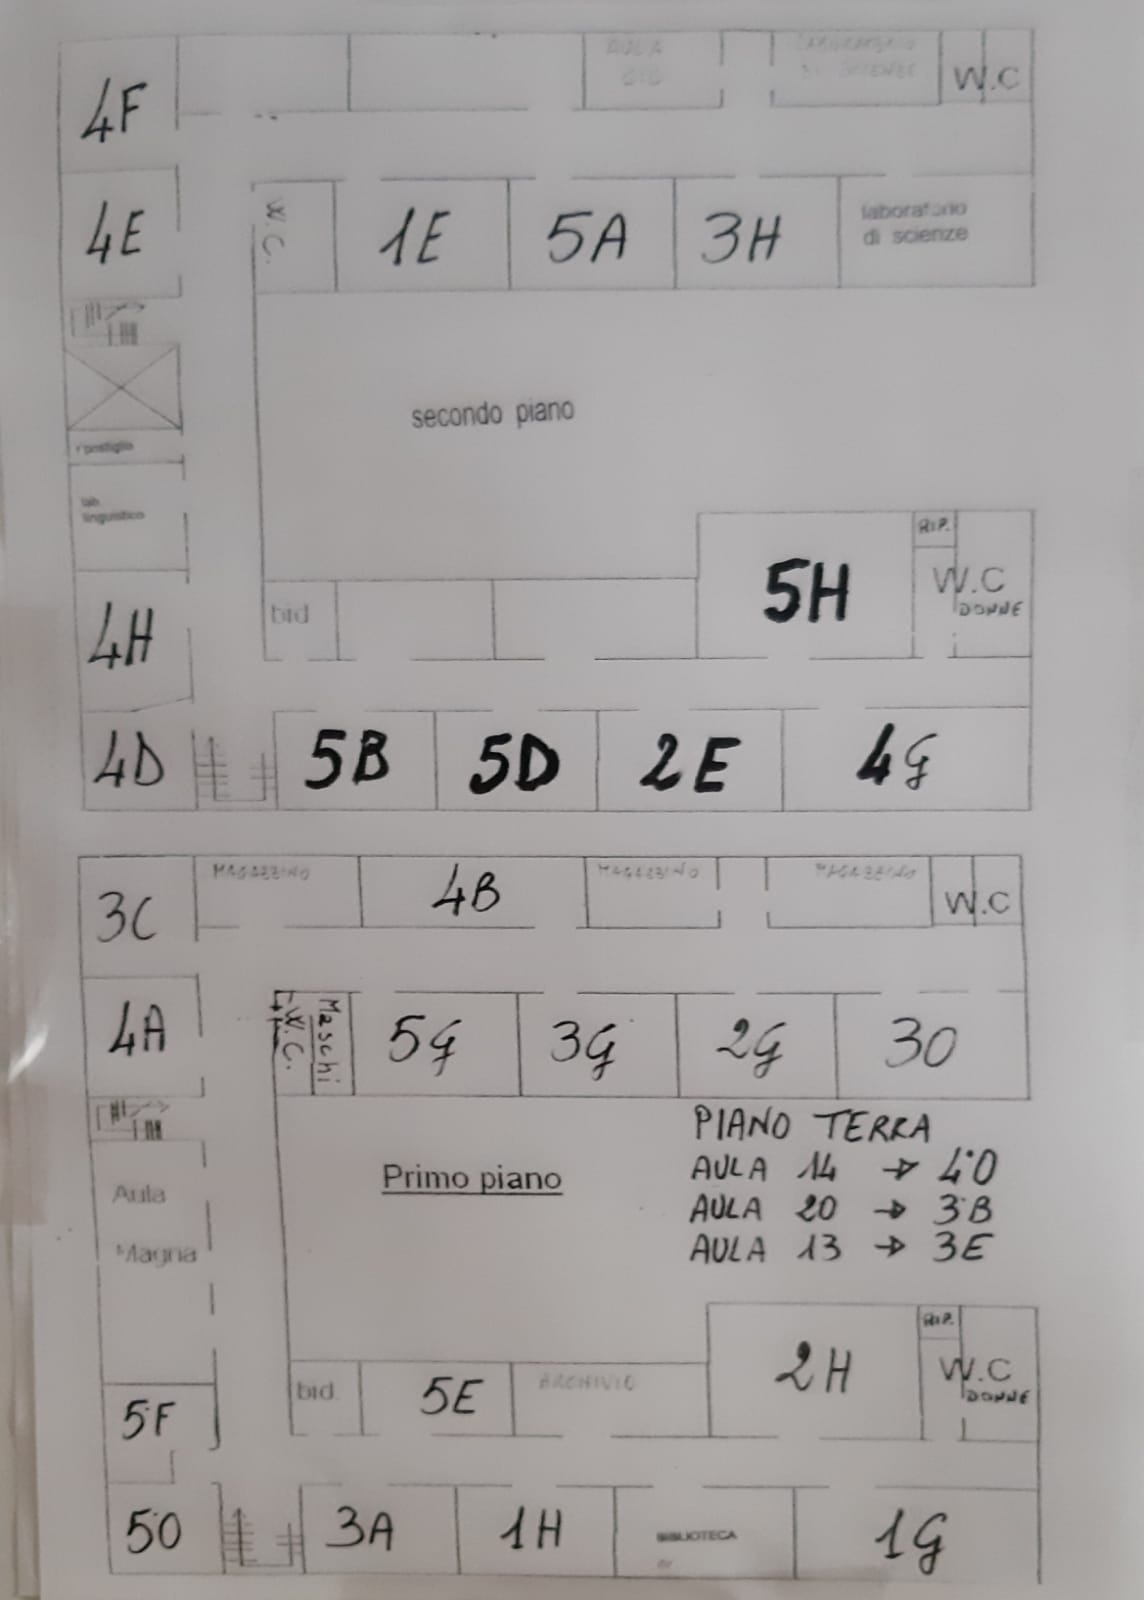 4F
AULA
LABORATORIO
DI SCIENZE
W.C
4E
W.C.
1E
5A
3H
laboratorio
di scienze
secondo piano
ripostiglio
lab.
linguistico
5H
RIP.
W.C
DONNE
4H
bid
4D
5B
5D
2E
4G
3C
MAGAZZINO
4B
MAGAZZINO
MAGAZZINO
W.C
4A
W.C.
Maschi
5G
3G
2G
3O
PIANO TERRA
AULA 14 → 4°O
AULA 20 → 3°B
AULA 13 → 3E
Primo piano
Aula
Magna
2H
RIP.
W.C
DONNE
bid.
5E
ARCHIVIO
5F
5O
3A
1H
BIBLIOTECA
1G